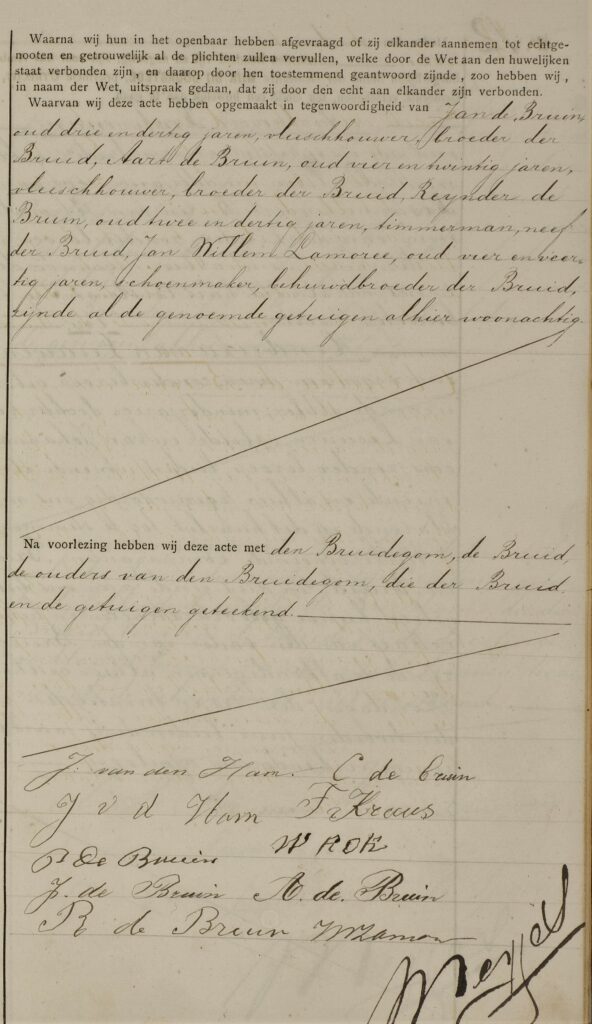 Waarna wij hun in het openbaar hebben afgevraagd of zij elkander aannemen tot echtge-
nooten en getrouwelijk al de plichten zullen vervullen, welke door de Wet aan den huwelijken
staat verbonden zijn, en daarop door hen toestemmend geantwoord zijnde, zoo hebben wij,
in naam der Wet, uitspraak gedaan, dat zij door den echt aan elkander zijn verbonden.
Waarvan wij deze acte hebben opgemaakt in tegenwoordigheid van Jan de Bruin,
oud drie en dertig jaren, vleeschhouwer, broeder der
Bruid, Aart de Bruin, oud vier en twintig jaren,
vleeschhouwer, broeder der Bruid, Reynder de
Bruin, oud twee en dertig jaren, timmerman, neef
der Bruid, Jan Willem Lamoree, oud vier en veer-
tig jaren, schoenmaker, behuwdbroeder der Bruid,
zijnde al de genoemde getuigen alhier woonachtig.
Na voorlezing hebben wij deze acte met den Bruidegom, de Bruid,
de ouders van den Bruidegom, die der Bruid
en de getuigen geteekend.
J. van den Ham. C de Bruin
J v d Ham F Kraus
P de Bruin W KOK
J. de Bruin A. de. Bruin
R de Bruin